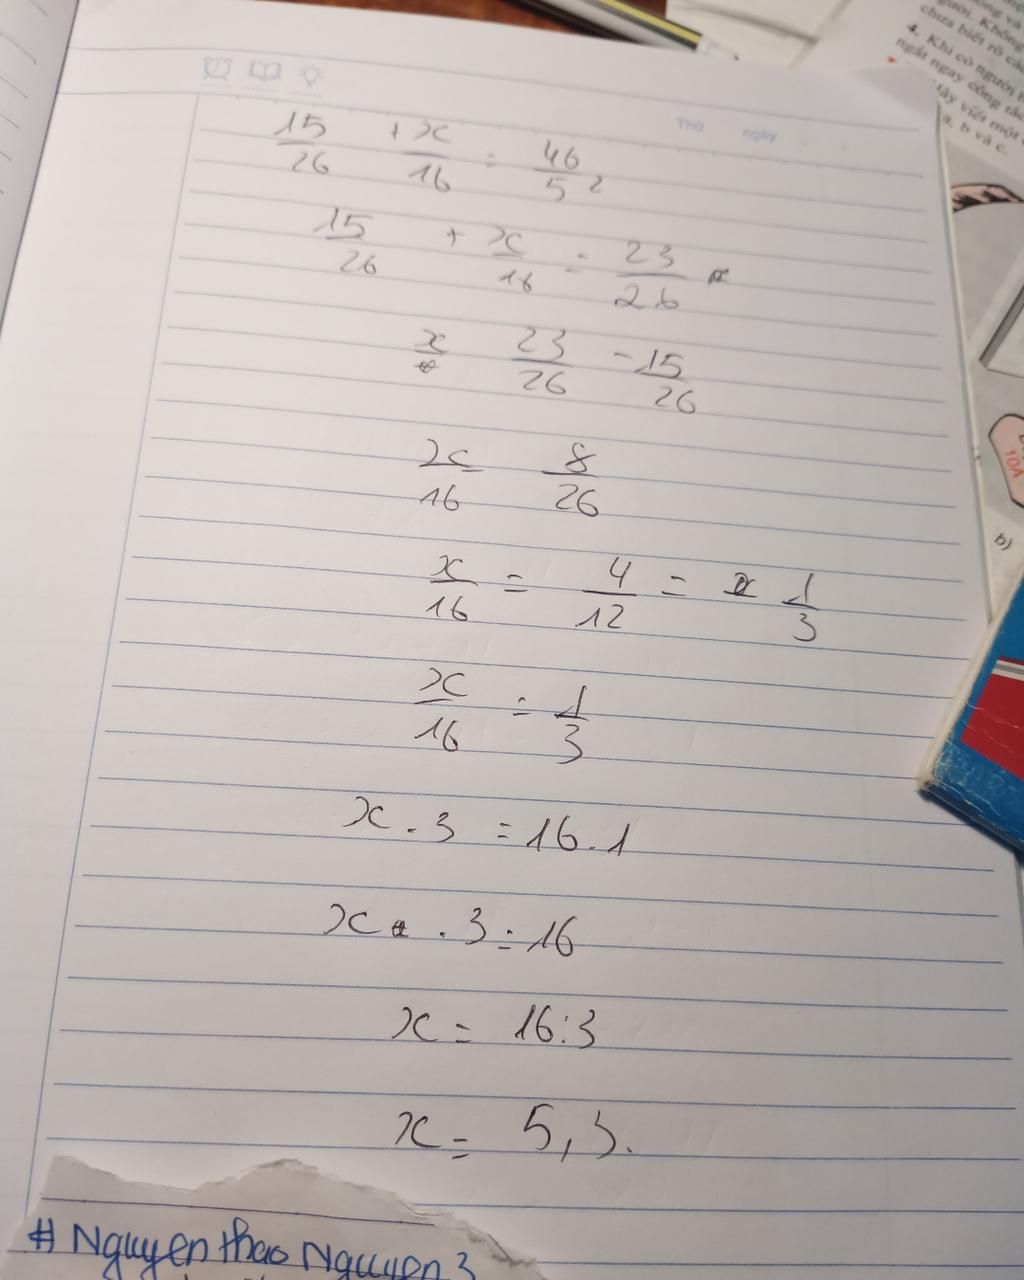 Thứ ngày
15/26 + x/16 = 46/52
15/26 + x/16 = 23/26
x 23/26 - 15/26
x/16 8/26
x/16 = 4/12 = 1/3
x/16 = 1/3
x . 3 = 16 . 1
x . 3 = 16
x = 16 : 3
x = 5,3.
# Nguyen thao Nguyen 3
chưa biết rõ
4. Khi có người
ngắt ngay công tắc
a, b và c.
10A
b)